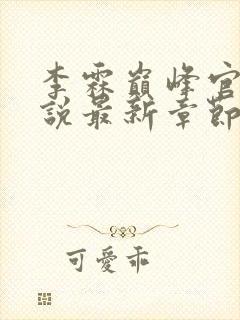 李霖巔峰官
說最新章節
可愛乖